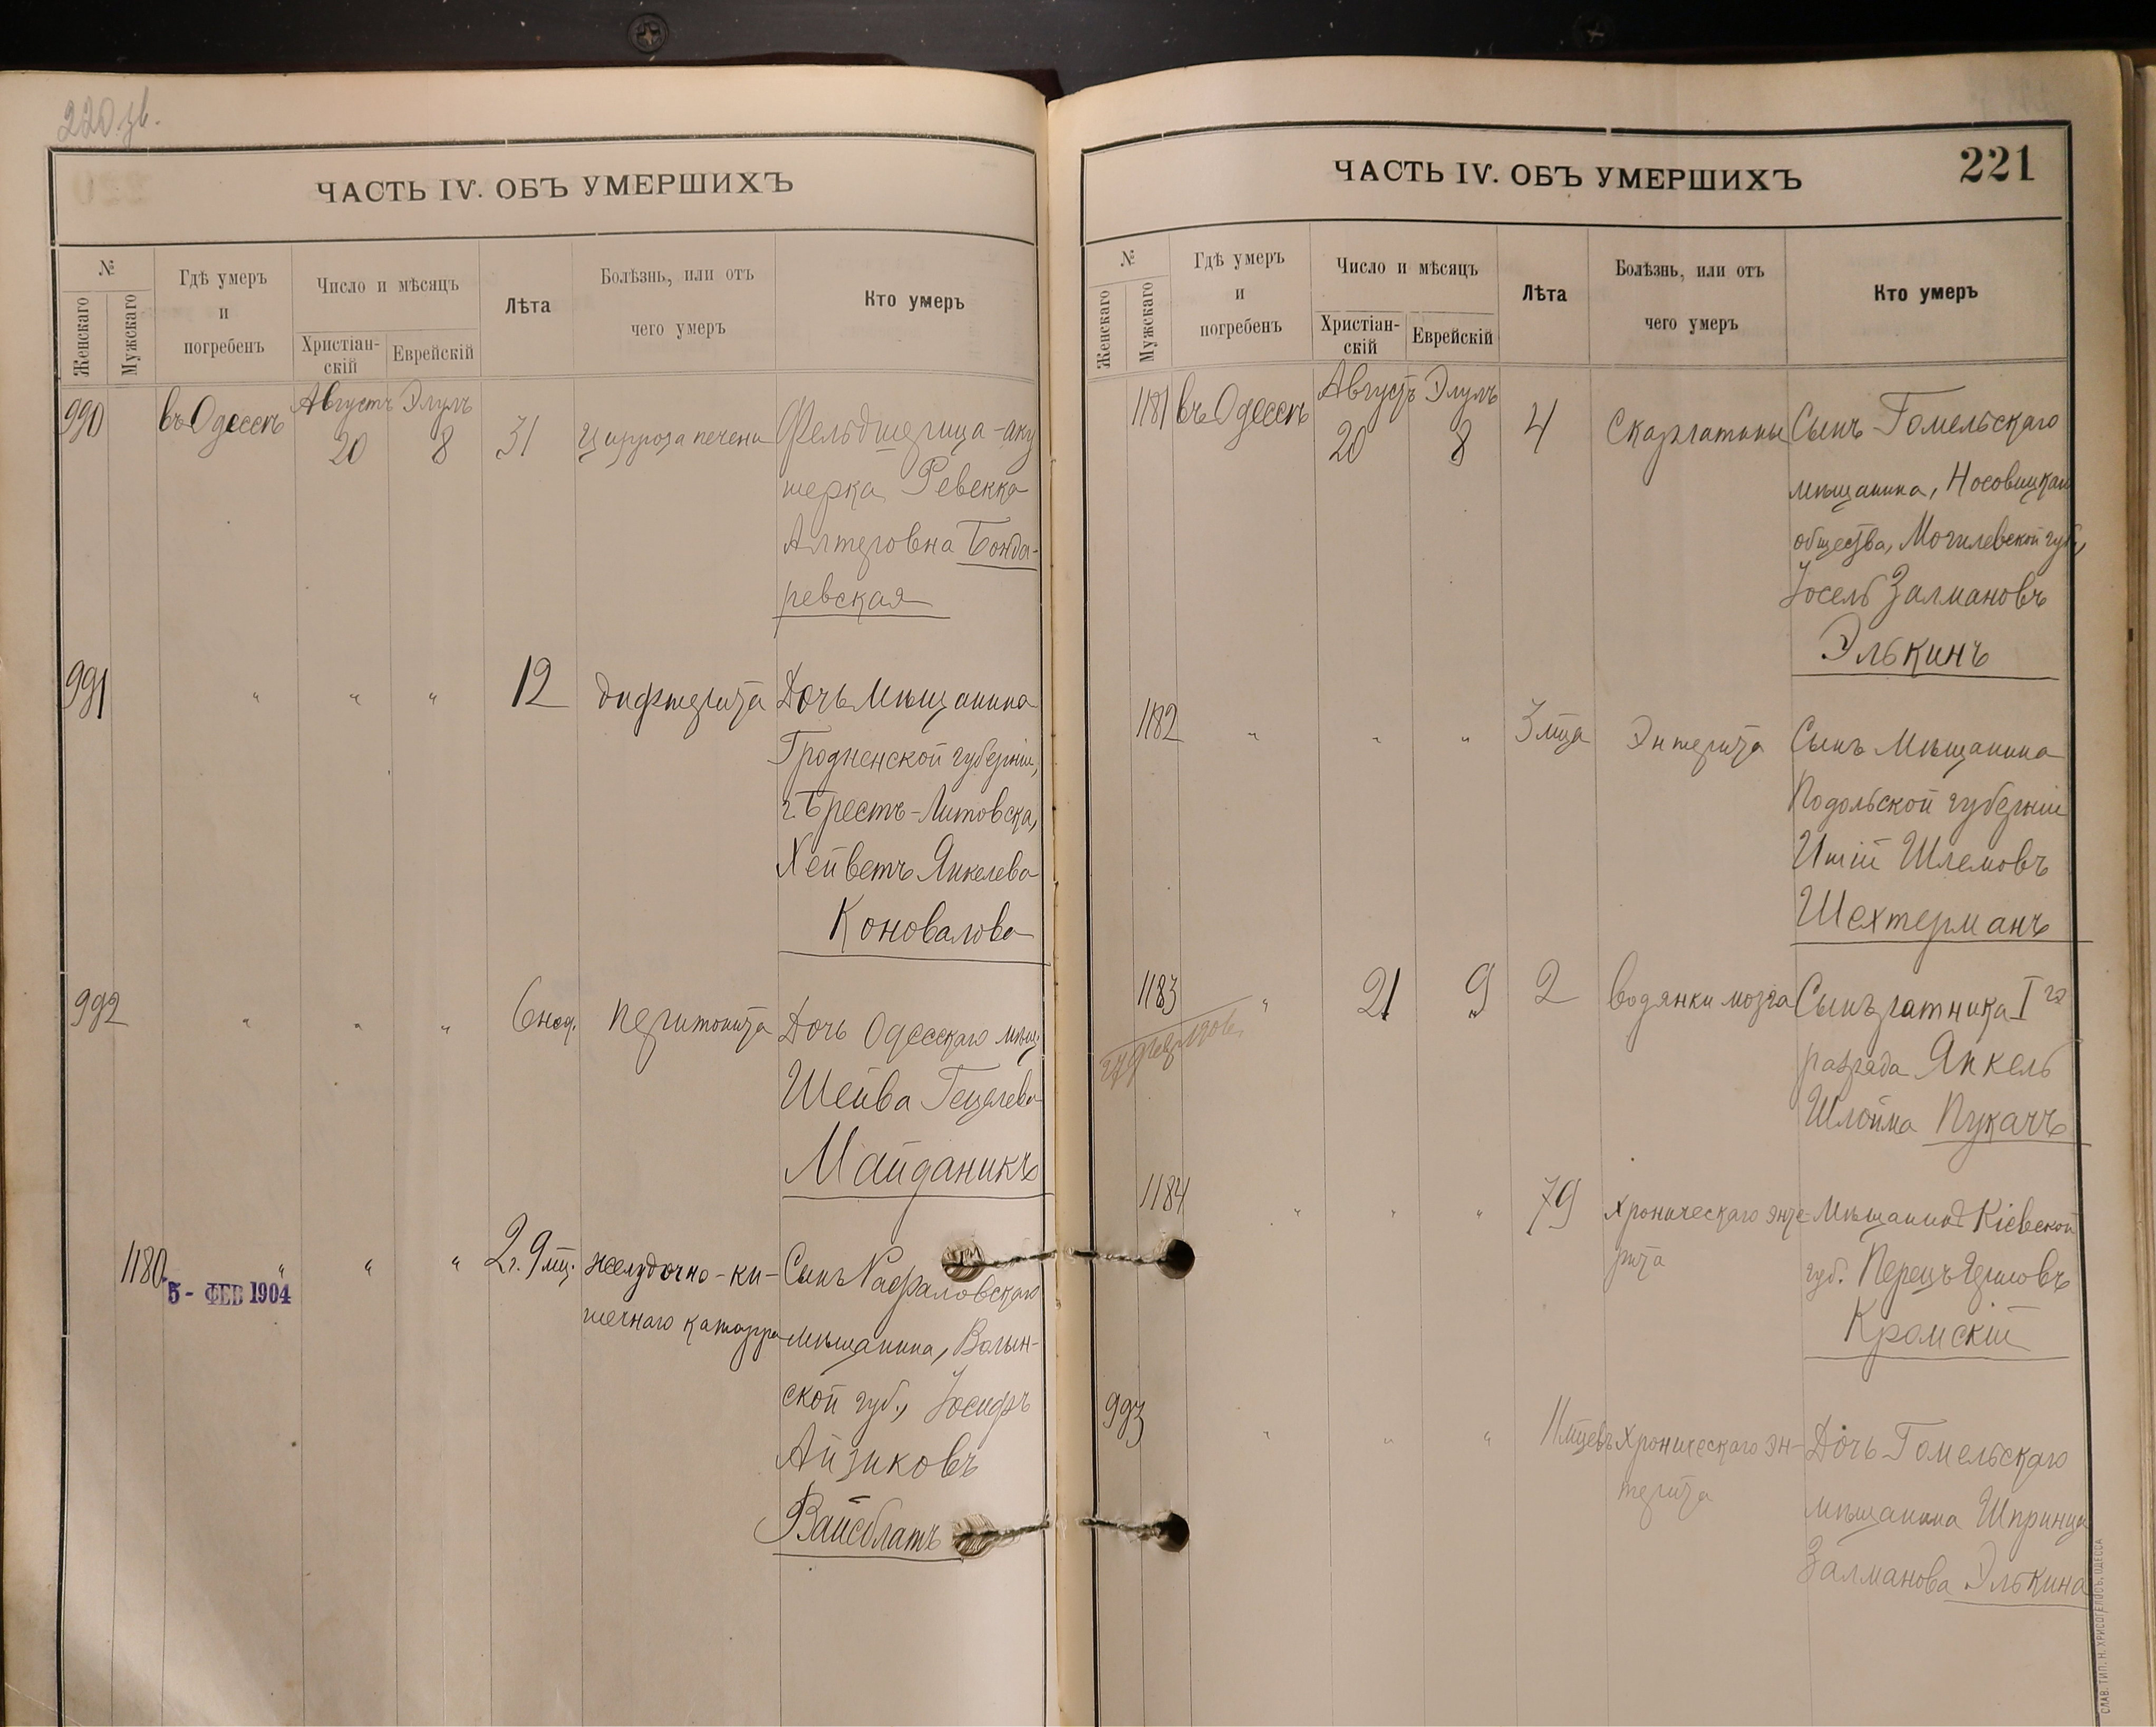 220 зв.
ЧАСТЬ IV. ОБЪ УМЕРШИХЪ
№
Женскаго
Мужскаго
Гдѣ умеръ
и
погребенъ
Число и мѣсяцъ
Христіан-
скій
Еврейскій
Лѣта
Болѣзнь, или отъ
чего умеръ
Кто умеръ
990 въ Одессѣ Августъ 20 Элулъ 8 31 Цирроза печени Фельдшерица-аку
шерка Ревекка
Алтеровна Бонда-
ревская
991 " " " 12 дифтерита Дочь мѣщанина
Гродненской губерніи,
г. Брестъ-Литовска,
Хейветъ Янкелева
Коновалова
992 " " " 6 нед. перитонита Дочь Одесскаго мѣщ.
Шейва Гецелева
Майданикъ
1180 " " " 2 г. 9 мц. желудочно-ки- Сынъ
5- ФЕВ 1904
шечнаго катарра мѣщанина, Волын-
ской губ., Іосифъ
Айзиковъ
Вайсблатъ
ЧАСТЬ IV. ОБЪ УМЕРШИХЪ
221
№
Женскаго
Мужскаго
Гдѣ умеръ
и
погребенъ
Число и мѣсяцъ
Христіан-
скій
Еврейскій
Лѣта
Болѣзнь, или отъ
чего умеръ
Кто умеръ
1181 въ Одессѣ Августъ 20 Элулъ 8 4 Скарлатины Сынъ Гомельскаго
мѣщанина, Носовицкаго
общества, Могилевской губ.,
Іосель Залмановъ
Элькинъ
1182 " " " 3 мца Энтерита Сынъ мѣщанина
Подольской губерніи
Шлемовъ
Шехтерманъ
1183 " 21 9 2 водянки мозга Сынъ ратника I го
разряда Янкель
Шлойма Пукачъ
1184 " " " 79 хроническаго энте- Мѣщанинъ Кіевской
рита
губ. Перецъ
Кромскій
993 " " " 11 мцевъ хроническаго эн- Дочь Гомельскаго
терита
мѣщанина Шпринца
Залманова Элькина
СЛАВ. ТИП. Н. ХРИСОГЕЛОСЪ, ОДЕССА